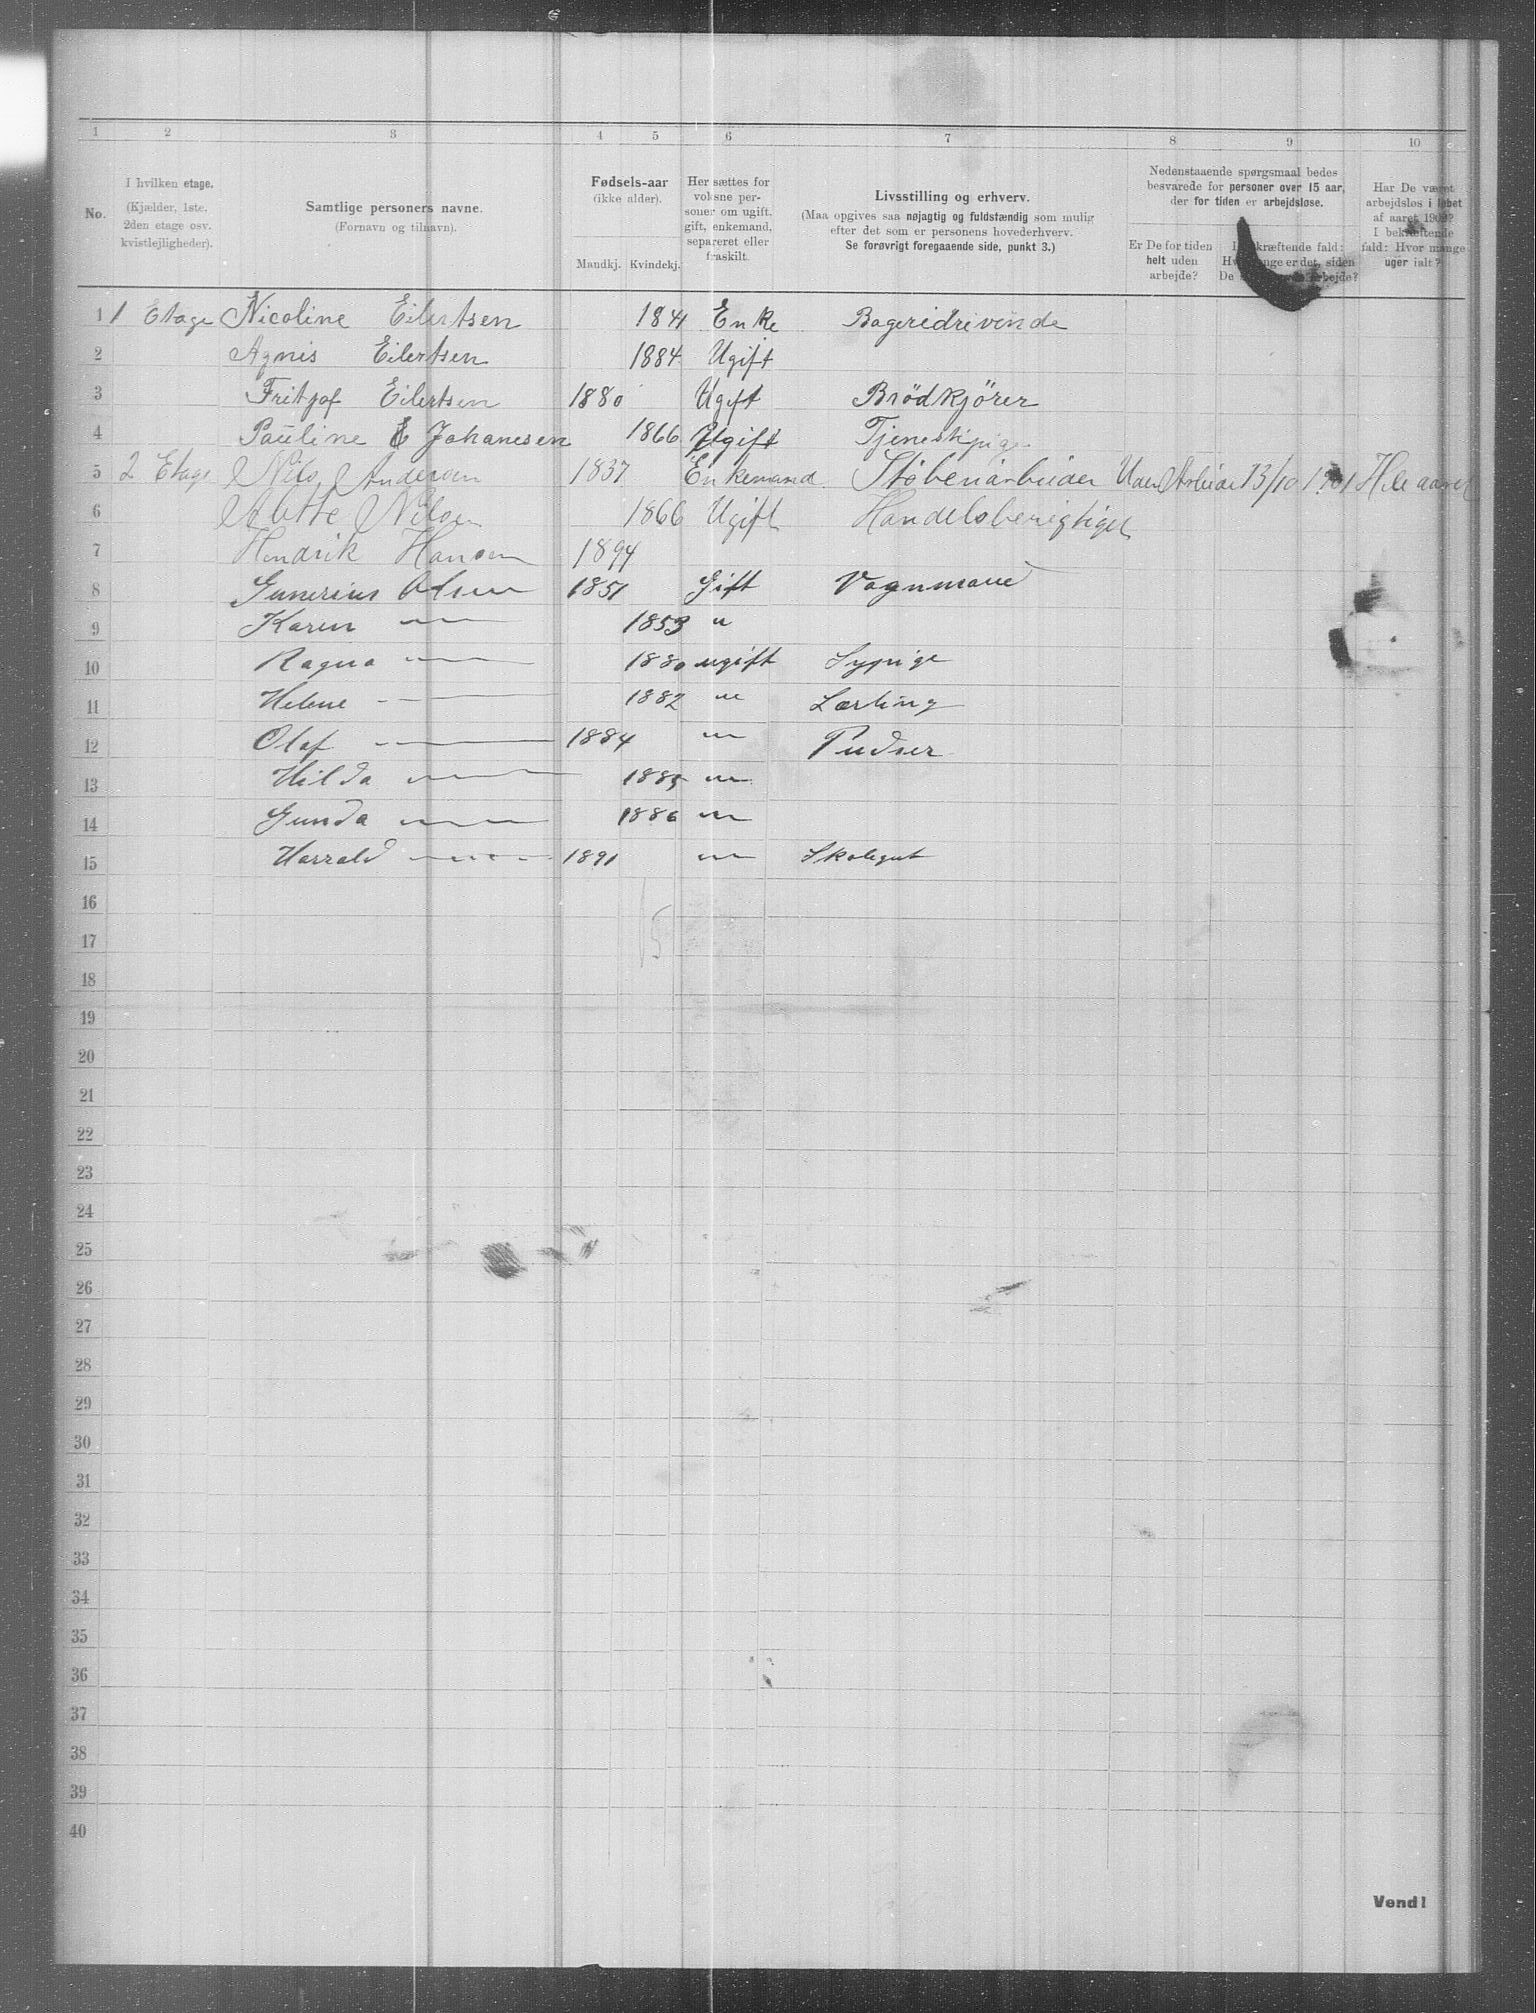 1 2 3 4 5 6 7 8 9 10
No.
I hvilken etage.
(Kjælder, 1ste.
2den etage osv.
kvistlejligheder).
Samtlige personers navne.
(Fornavn og tilnavn).
Fødsels-aar
(ikke alder).
Mandkj. Kvindekj.
Her sættes for
voksne per-
soner om ugift,
gift, enkemand,
separeret eller
fraskilt.
Livsstilling og erhverv.
(Maa opgives saa nøjagtig og fuldstændig som mulig
efter det som er personens hovederhverv.
Se forøvrigt foregaaende side, punkt 3.)
Nedenstaaende spørgsmaal bedes
besvarede for personer over 15 aar,
der for tiden er arbejdsløse.
Er De for tiden
helt uden
arbejde?
I bekræftende fald:
Hvor mange er det, siden
De arbejde?
Har De været
arbejdsløs i løbet
af aaret 1902?
I bekræftende
fald: Hvor mange
uger ialt?
1 1 Etage Nicoline Eilertsen 1841 Enke Bageridrivende
2 Agnis Eilertsen 1884 Ugift
3 Fritjof Eilertsen 1880 Ugift Brödkjörer
4 Pauline E Johanesen 1866 Ugift Tjenestepige
5 2 Etage Nils Andersen 1837 Enkemand Uden Arbeide 13/10 1901 Hele aaret
6 Alette Nilsen 1866 Ugift Handelsberigtiget
7 Hendrik Hansen 1894
8 Gunerius Olsen 1851 Gift Vognmand
9 Karen —"— 1853 "
10 Ragna —"— 1880 ugift Sypige
11 Helene —"— 1882 —"— Lærling
12 Olaf —"— 1884 —"— Pudser
13 Hilda —"— 1885 —"—
14 Gunda —"— 1886 —"—
15 Harrald —"— 1891 —"— Skolegut
16
15
17
18
19
20
21
22
23
24
25
26
27
28
29
30
31
32
33
34
35
36
37
38
39
40
Vend!